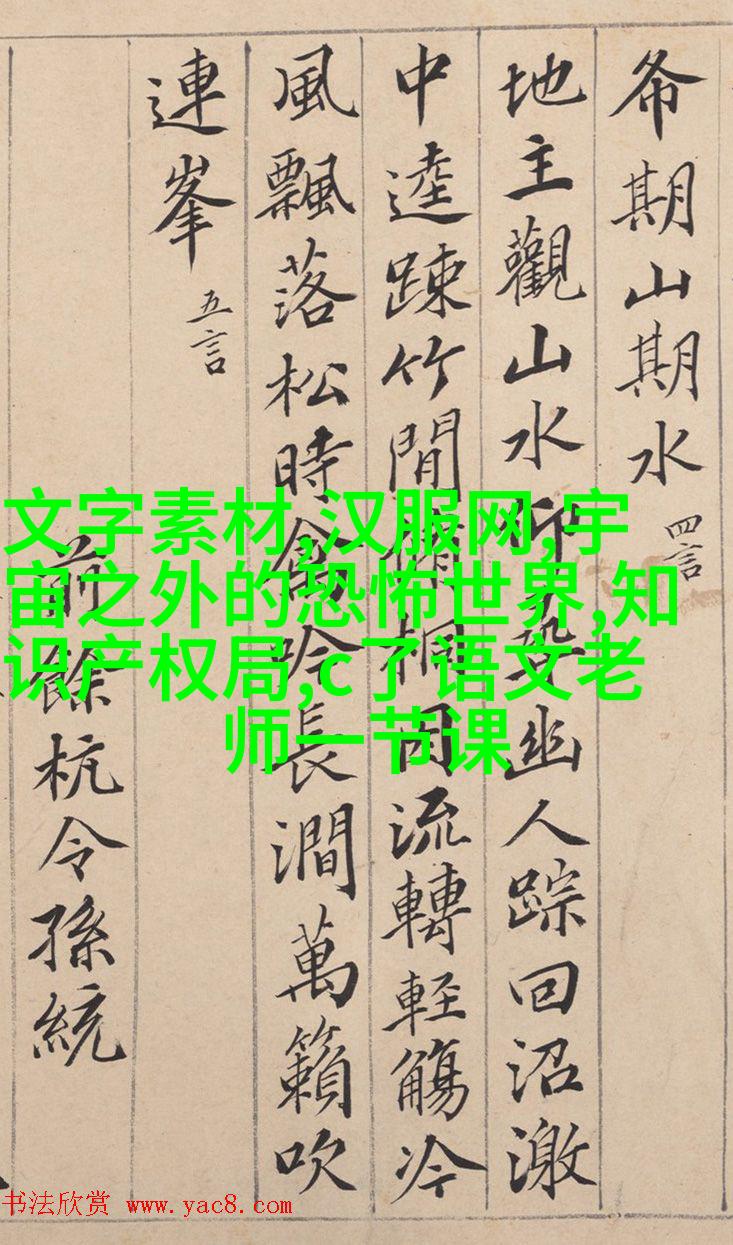 希期山期水 四言
地主觀山水仰尋幽人踪回沼激
中逵踈竹間脩桐因流轉輕觴冷
風飄落松時禽吟長澗萬籟吹
連峯 五言
前餘杭令孫統
文字素材,汉服网,宇
宙之外的恐怖世界,知
识产权局,c了语文老
师一节课
书法欣赏 www.yac8.com